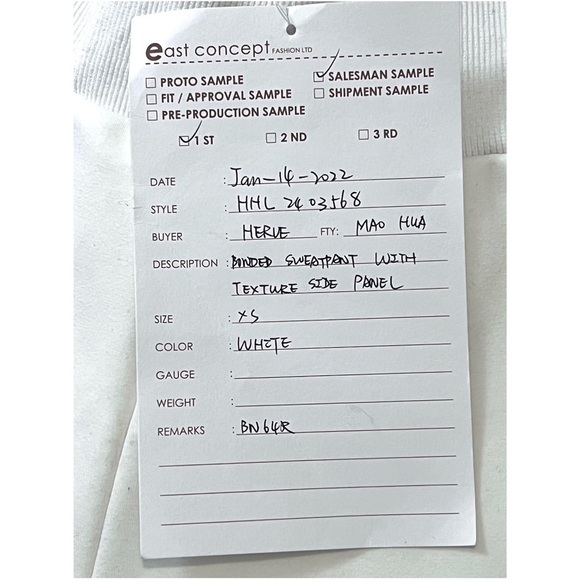 east concept FASHION LTD
PROTO SAMPLE SALESMAN SAMPLE
FIT / APPROVAL SAMPLE SHIPMENT SAMPLE
PRE-PRODUCTION SAMPLE
1 ST 2 ND 3 RD
DATE : Jan-14-2022
STYLE : HHL 2403568
BUYER : HERVE FTY: MAO HUA
DESCRIPTION : BONDED SWEATPANT WITH
TEXTURE SIDE PANEL
SIZE : XS
COLOR : WHITE
GAUGE :
WEIGHT :
REMARKS :